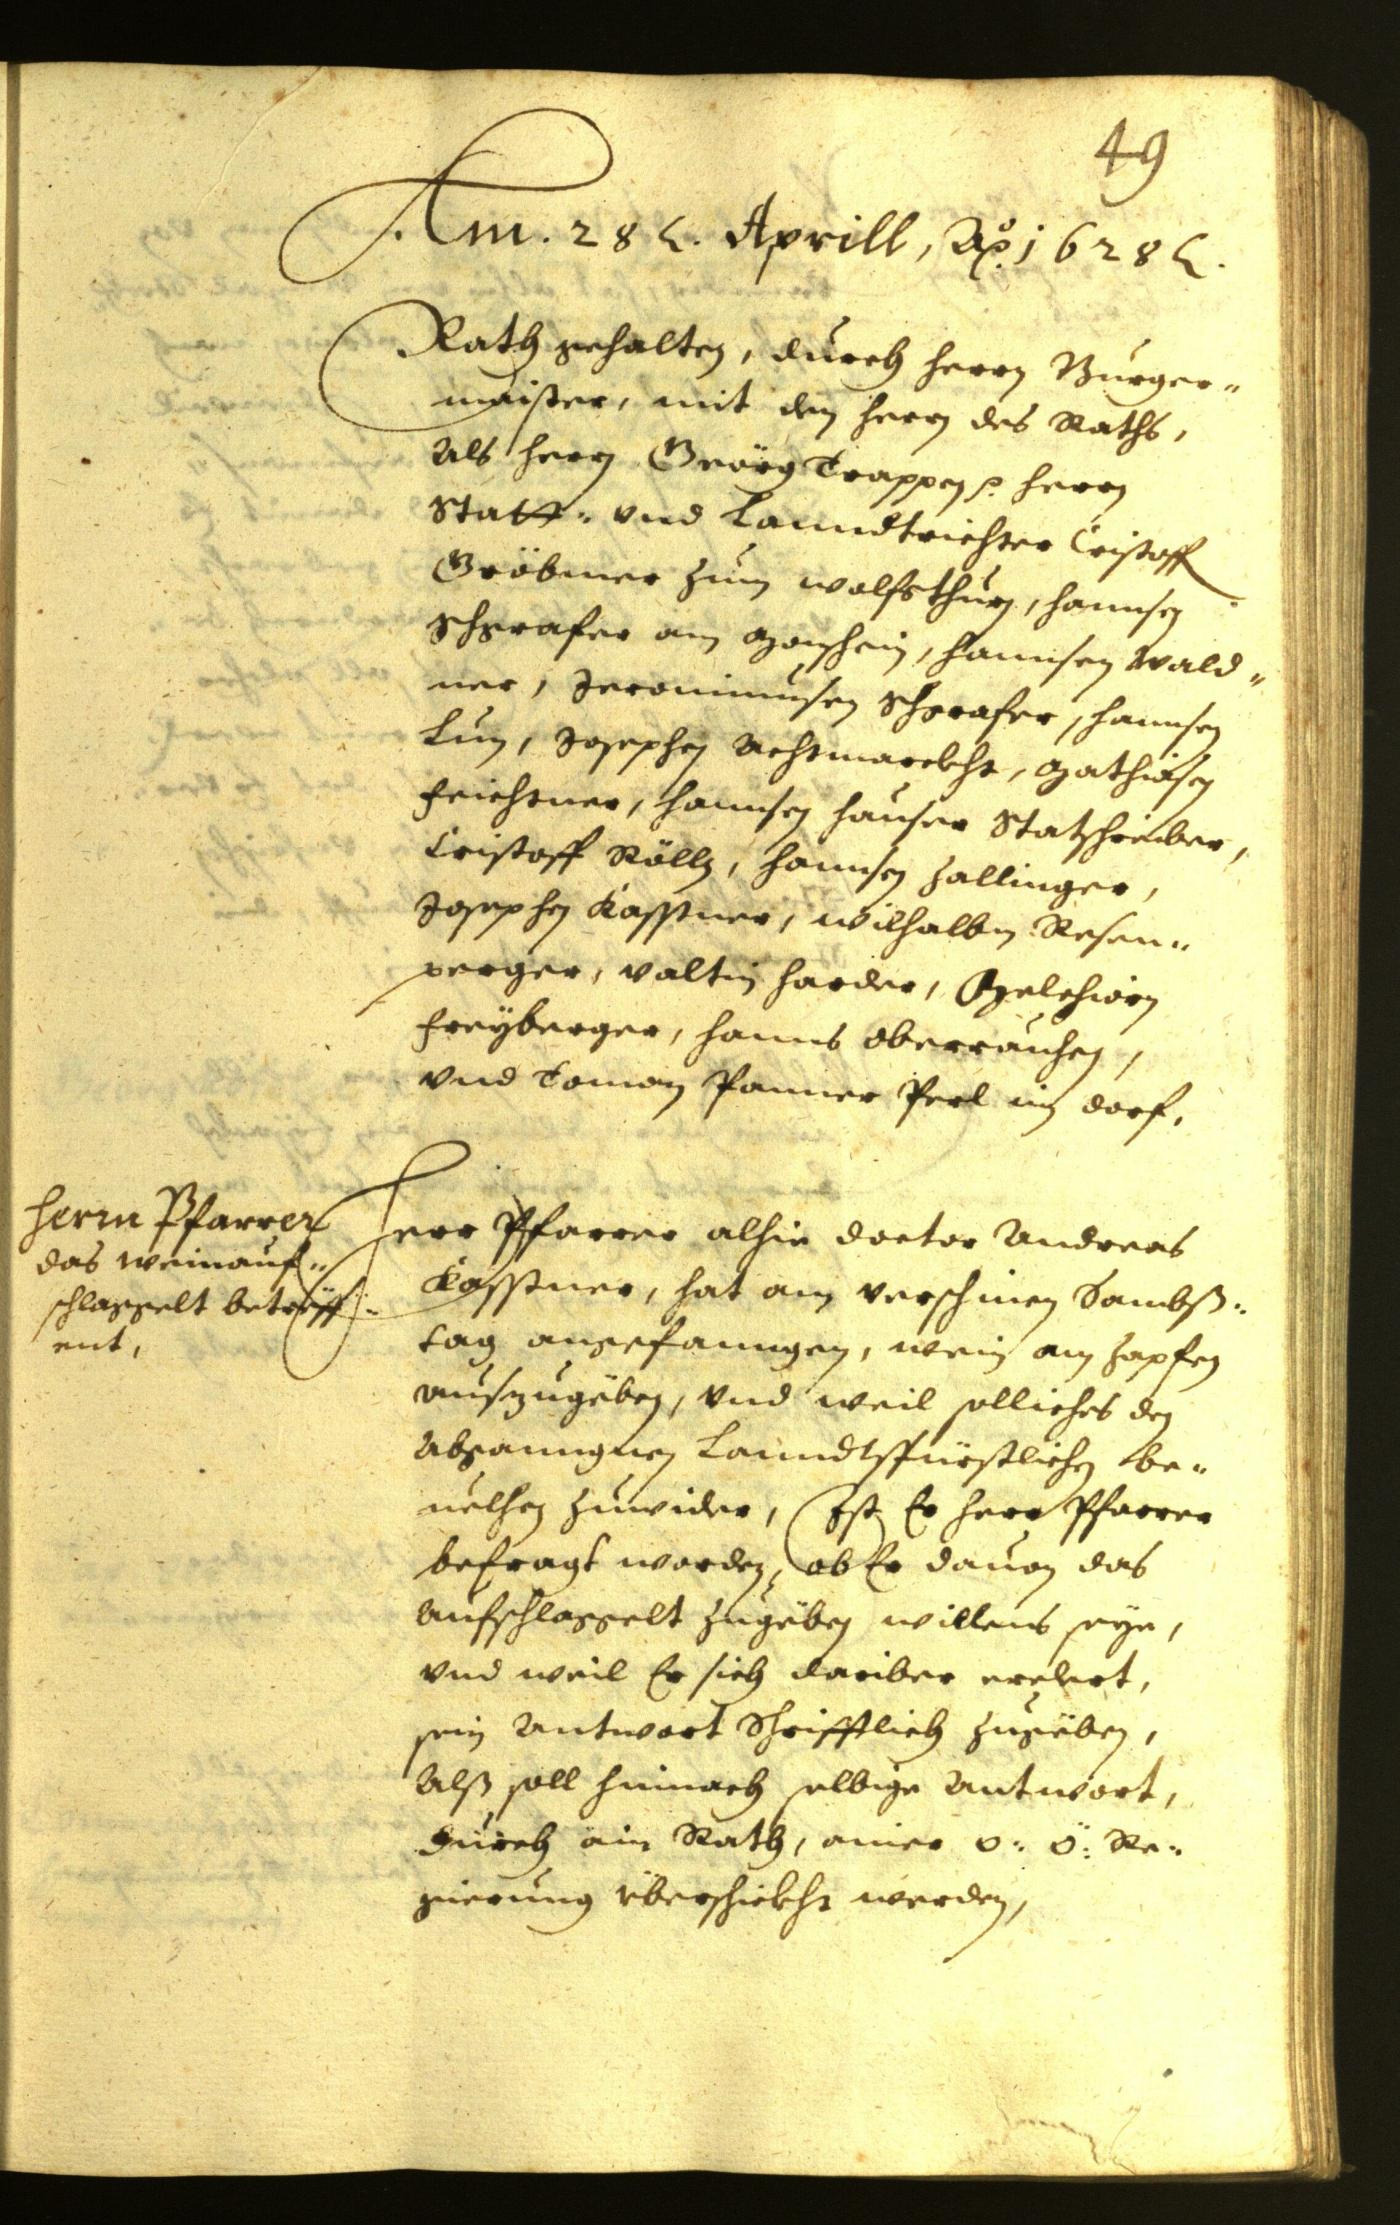 49
Am. 28 t. Aprill, Aō. 1628 t.
Rath gehalten, durch herrn Burger-
maister, mit den herrn des Raths,
Als herrn Geörg Trappen, herrn
Statt- vnd Lanndtrichter Cristoff
Gröbmer zum wolfsthurn, hannsen
Schgrafer am Monschein, hannsen Wald-
ner, Jeronimusen Schgrafer, hannsen
Lun, Josephen Achtmarckht, Mathiasen
Feichtner, hannsen hauser Statschreiber,
Cristoff Röllz, hannsen Zallinger,
Josephen Kasstner, wilhalbm Resen-
perger, Valtin harder, Melchiorn
Freyberger, hanns Oberrauchen,
vnd Toman Panner Perl im dorf.
Herrn Pfarrer
das weinauf-
schlaggelt betreff-
ent,
Herr Pfarrer alhie doctor Andreas
Kasstner, hat am verschinen Sambß-
tag angefanngen, wein am Zapfen
auszugeben, vnd weil solliches den
Abganngnen Lanndtsfürstlichen be-
uelhen zuwider, Ist Er herr Pfarrer
befragt worden, ob Er dauon das
Aufschlaggelt zugeben willens seye,
vnd weil Er sich dariber erclert,
sein Antwort Schrifftlich zugeben,
Alß soll hinnach selbige Antwort,
durch ain Rath, ainer o: ö: Re-
gierung yberschickht werden,